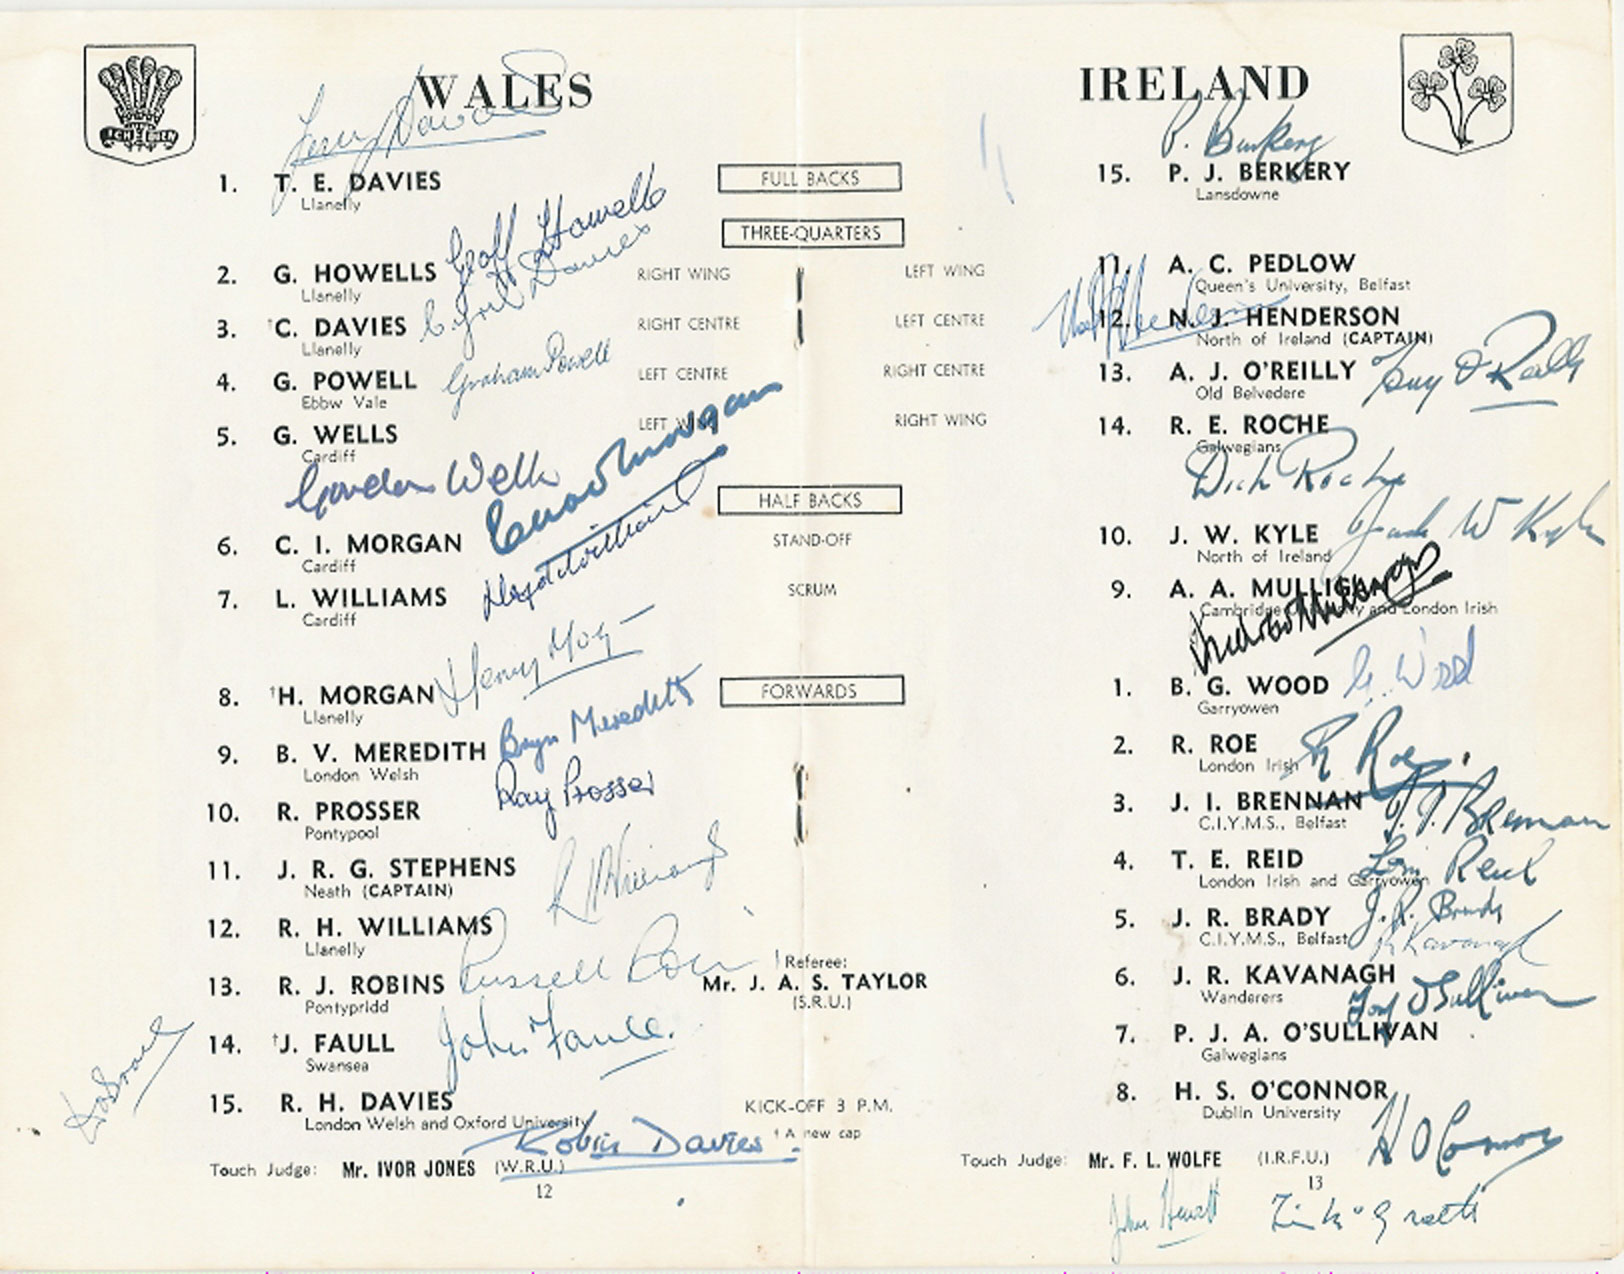 WALES
ICH DIEN
Terry Davies
1. T. E. DAVIES
Llanelly
2. G. HOWELLS
Llanelly
Geoff Howells
RIGHT WING
3. †C. DAVIES
Llanelly
Davies
RIGHT CENTRE
4. G. POWELL
Ebbw Vale
Graham Powell
LEFT CENTRE
5. G. WELLS
Cardiff
LEFT WING
Gordon Wells
6. C. I. MORGAN
Cardiff
Morgan
7. L. WILLIAMS
Cardiff
Williams
8. †H. MORGAN
Llanelly
Henry Mor
9. B. V. MEREDITH
London Welsh
Bryn Meredith
10. R. PROSSER
Pontypool
Ray Prosser
11. J. R. G. STEPHENS
Neath (CAPTAIN)
12. R. H. WILLIAMS
Llanelly
R H Williams
13. R. J. ROBINS
Pontypridd
Russell Robins
14. †J. FAULL
Swansea
John Faull.
15. R. H. DAVIES
London Welsh and Oxford University
Robin Davies
Touch Judge: Mr. IVOR JONES (W.R.U.)
12
FULL BACKS
THREE-QUARTERS
LEFT WING
LEFT CENTRE
RIGHT CENTRE
RIGHT WING
HALF BACKS
STAND-OFF
SCRUM
FORWARDS
Referee:
Mr. J. A. S. TAYLOR
(S.R.U.)
KICK-OFF 3 P.M.
† A new cap
IRELAND
P. Berkery
15. P. J. BERKERY
Lansdowne
11. A. C. PEDLOW
Queen's University, Belfast
12. N. J. HENDERSON
North of Ireland (CAPTAIN)
Henderson
13. A. J. O'REILLY
Old Belvedere
Tony O'Reilly
14. R. E. ROCHE
Galwegians
Dick Roche
10. J. W. KYLE
North of Ireland
Jack W Kyle
9. A. A. MULLIGAN
Cambridge University and London Irish
Andrew Mulligan
1. B. G. WOOD
Garryowen
G. Wood
2. R. ROE
London Irish
R Roe
3. J. I. BRENNAN
C.I.Y.M.S., Belfast
J. I. Brennan
4. T. E. REID
London Irish and Garryowen
Tom Reid
5. J. R. BRADY
C.I.Y.M.S., Belfast
J. R. Brady
6. J. R. KAVANAGH
Wanderers
R Kavanagh
7. P. J. A. O'SULLIVAN
Galwegians
O'Sullivan
8. H. S. O'CONNOR
Dublin University
H O'Connor
Touch Judge: Mr. F. L. WOLFE (I.R.F.U.)
13
John Hewitt